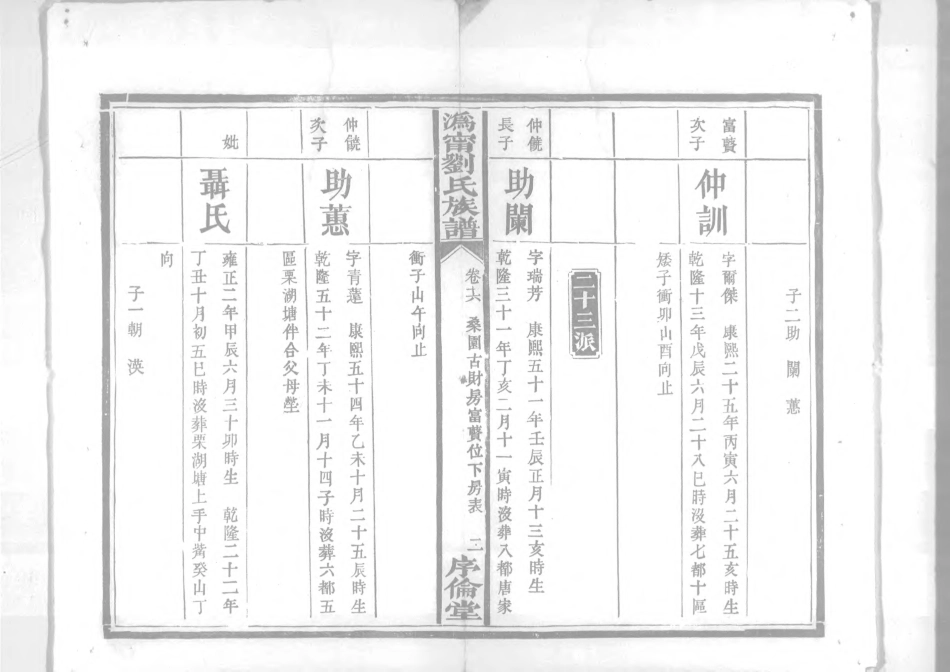 子二助闌 蕙
富贇
次子
仲訓
字爾傑 康熙二十五年丙寅六月二十五亥時生
乾隆十三年戊辰六月二十八巳時沒葬七都十區
矮子衝卯山酉向止
二十三派
仲僥
長子
助闌
字瑞芳 康熙五十一年壬辰正月十三亥時生
乾隆三十一年丁亥二月十一寅時沒葬八都唐家
溈甯劉氏族譜
卷六 桑園古財房富贇位下房表 二
序倫堂
衝子山午向止
仲僥
次子
助蕙
字青蓮 康熙五十四年乙未十月二十五辰時生
乾隆五十二年丁未十一月十四子時沒葬六都五
區栗湖塘伴合父母塋
妣
聶氏
雍正二年甲辰六月三十卯時生 乾隆二十二年
丁丑十月初五巳時沒葬栗湖塘上手中嘴癸山丁
向
子一朝渶